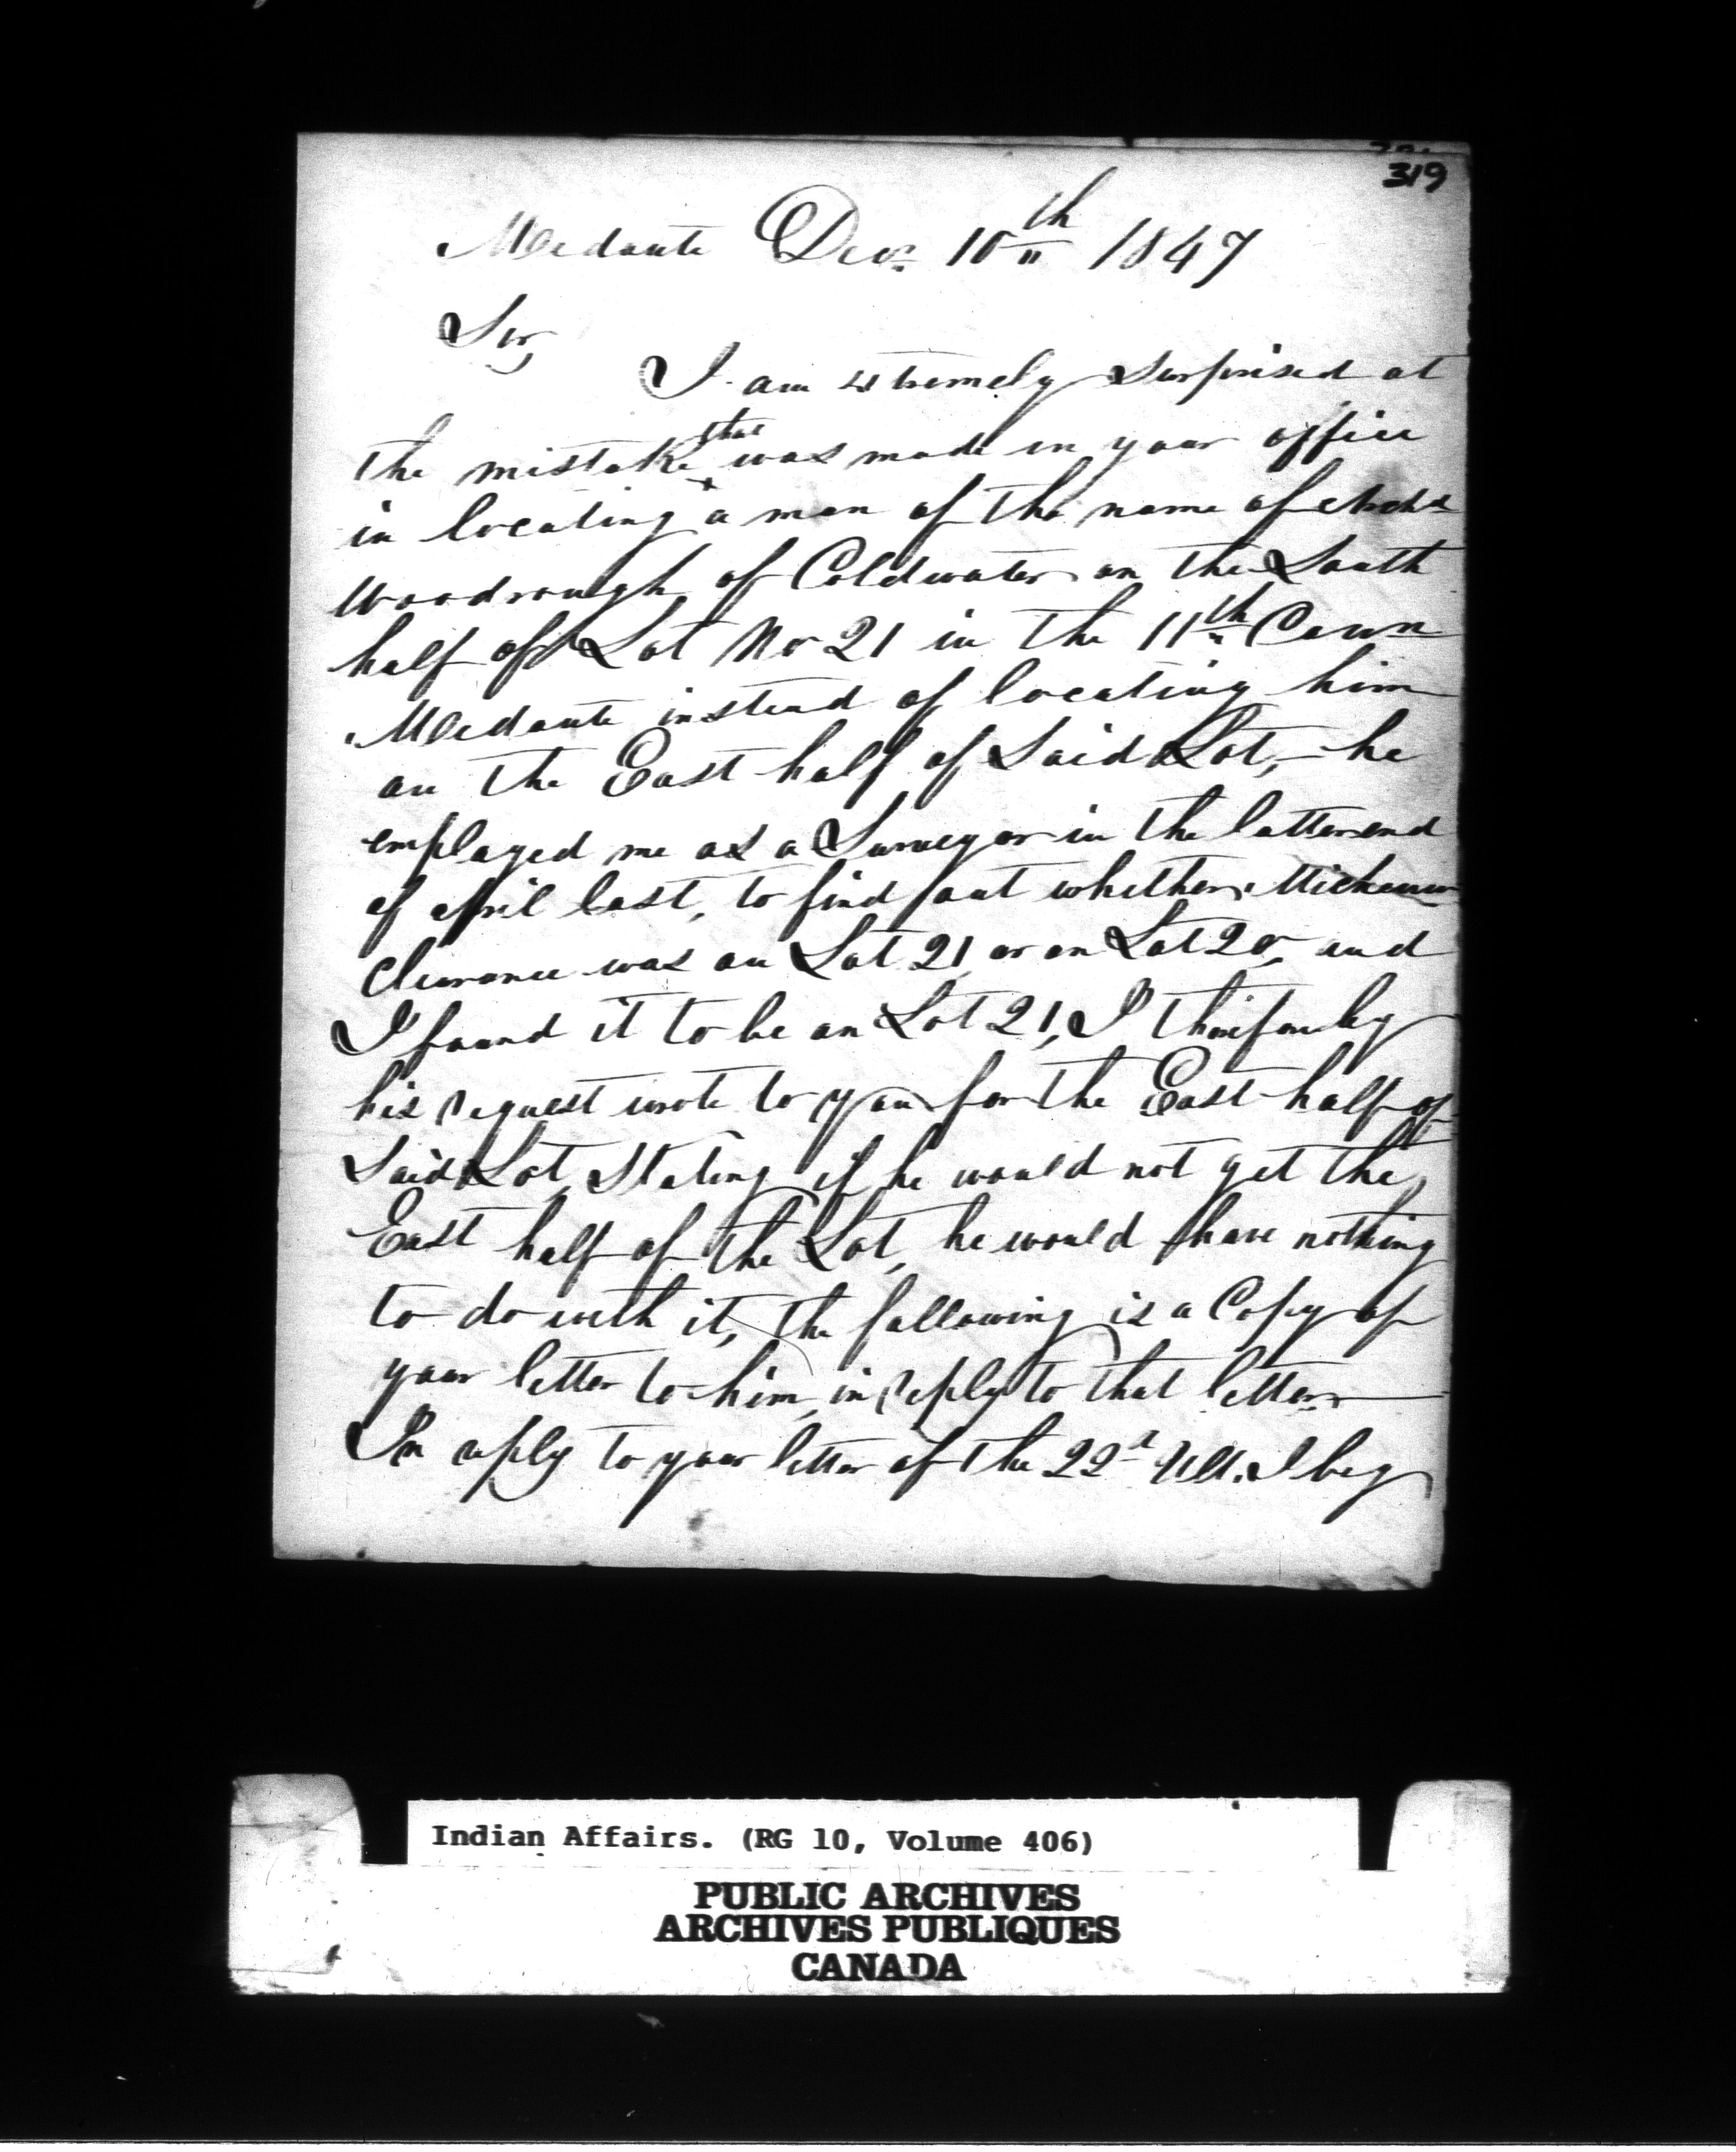 319
Medonte Decr 10th 1847
Sir,
I am extremely surprised at
the mistake that was made in your office
in locating a man of the name of
Woodrough of Coldwater on the South
half of Lot No 21 in the 11th Conn
Medonte instead of locating him
on the East half of Said Lot, he
employed me as a Surveyor in the latter end
of april last, to find out whether
Clearance was on Lot 21 or on Lot 20, and
I found it to be on Lot 21, I therefore by
his request wrote to you for the East half of
Said Lot, Stating if he would not get the
East half of the Lot, he would have nothing
to do with it, the following is a Copy of
your letter to him, in reply to that letter
In reply to your letter of the 22d Ult. I beg
Indian Affairs. (RG 10, Volume 406)
PUBLIC ARCHIVES
ARCHIVES PUBLIQUES
CANADA